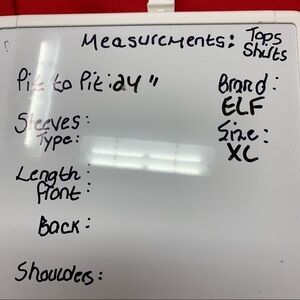 Measurements: Tops
Shirts
Pit to Pit: 24"
Sleeves:
Type:
Length:
Front:
Back:
Shoulders:
Brand:
ELF
Size:
XL